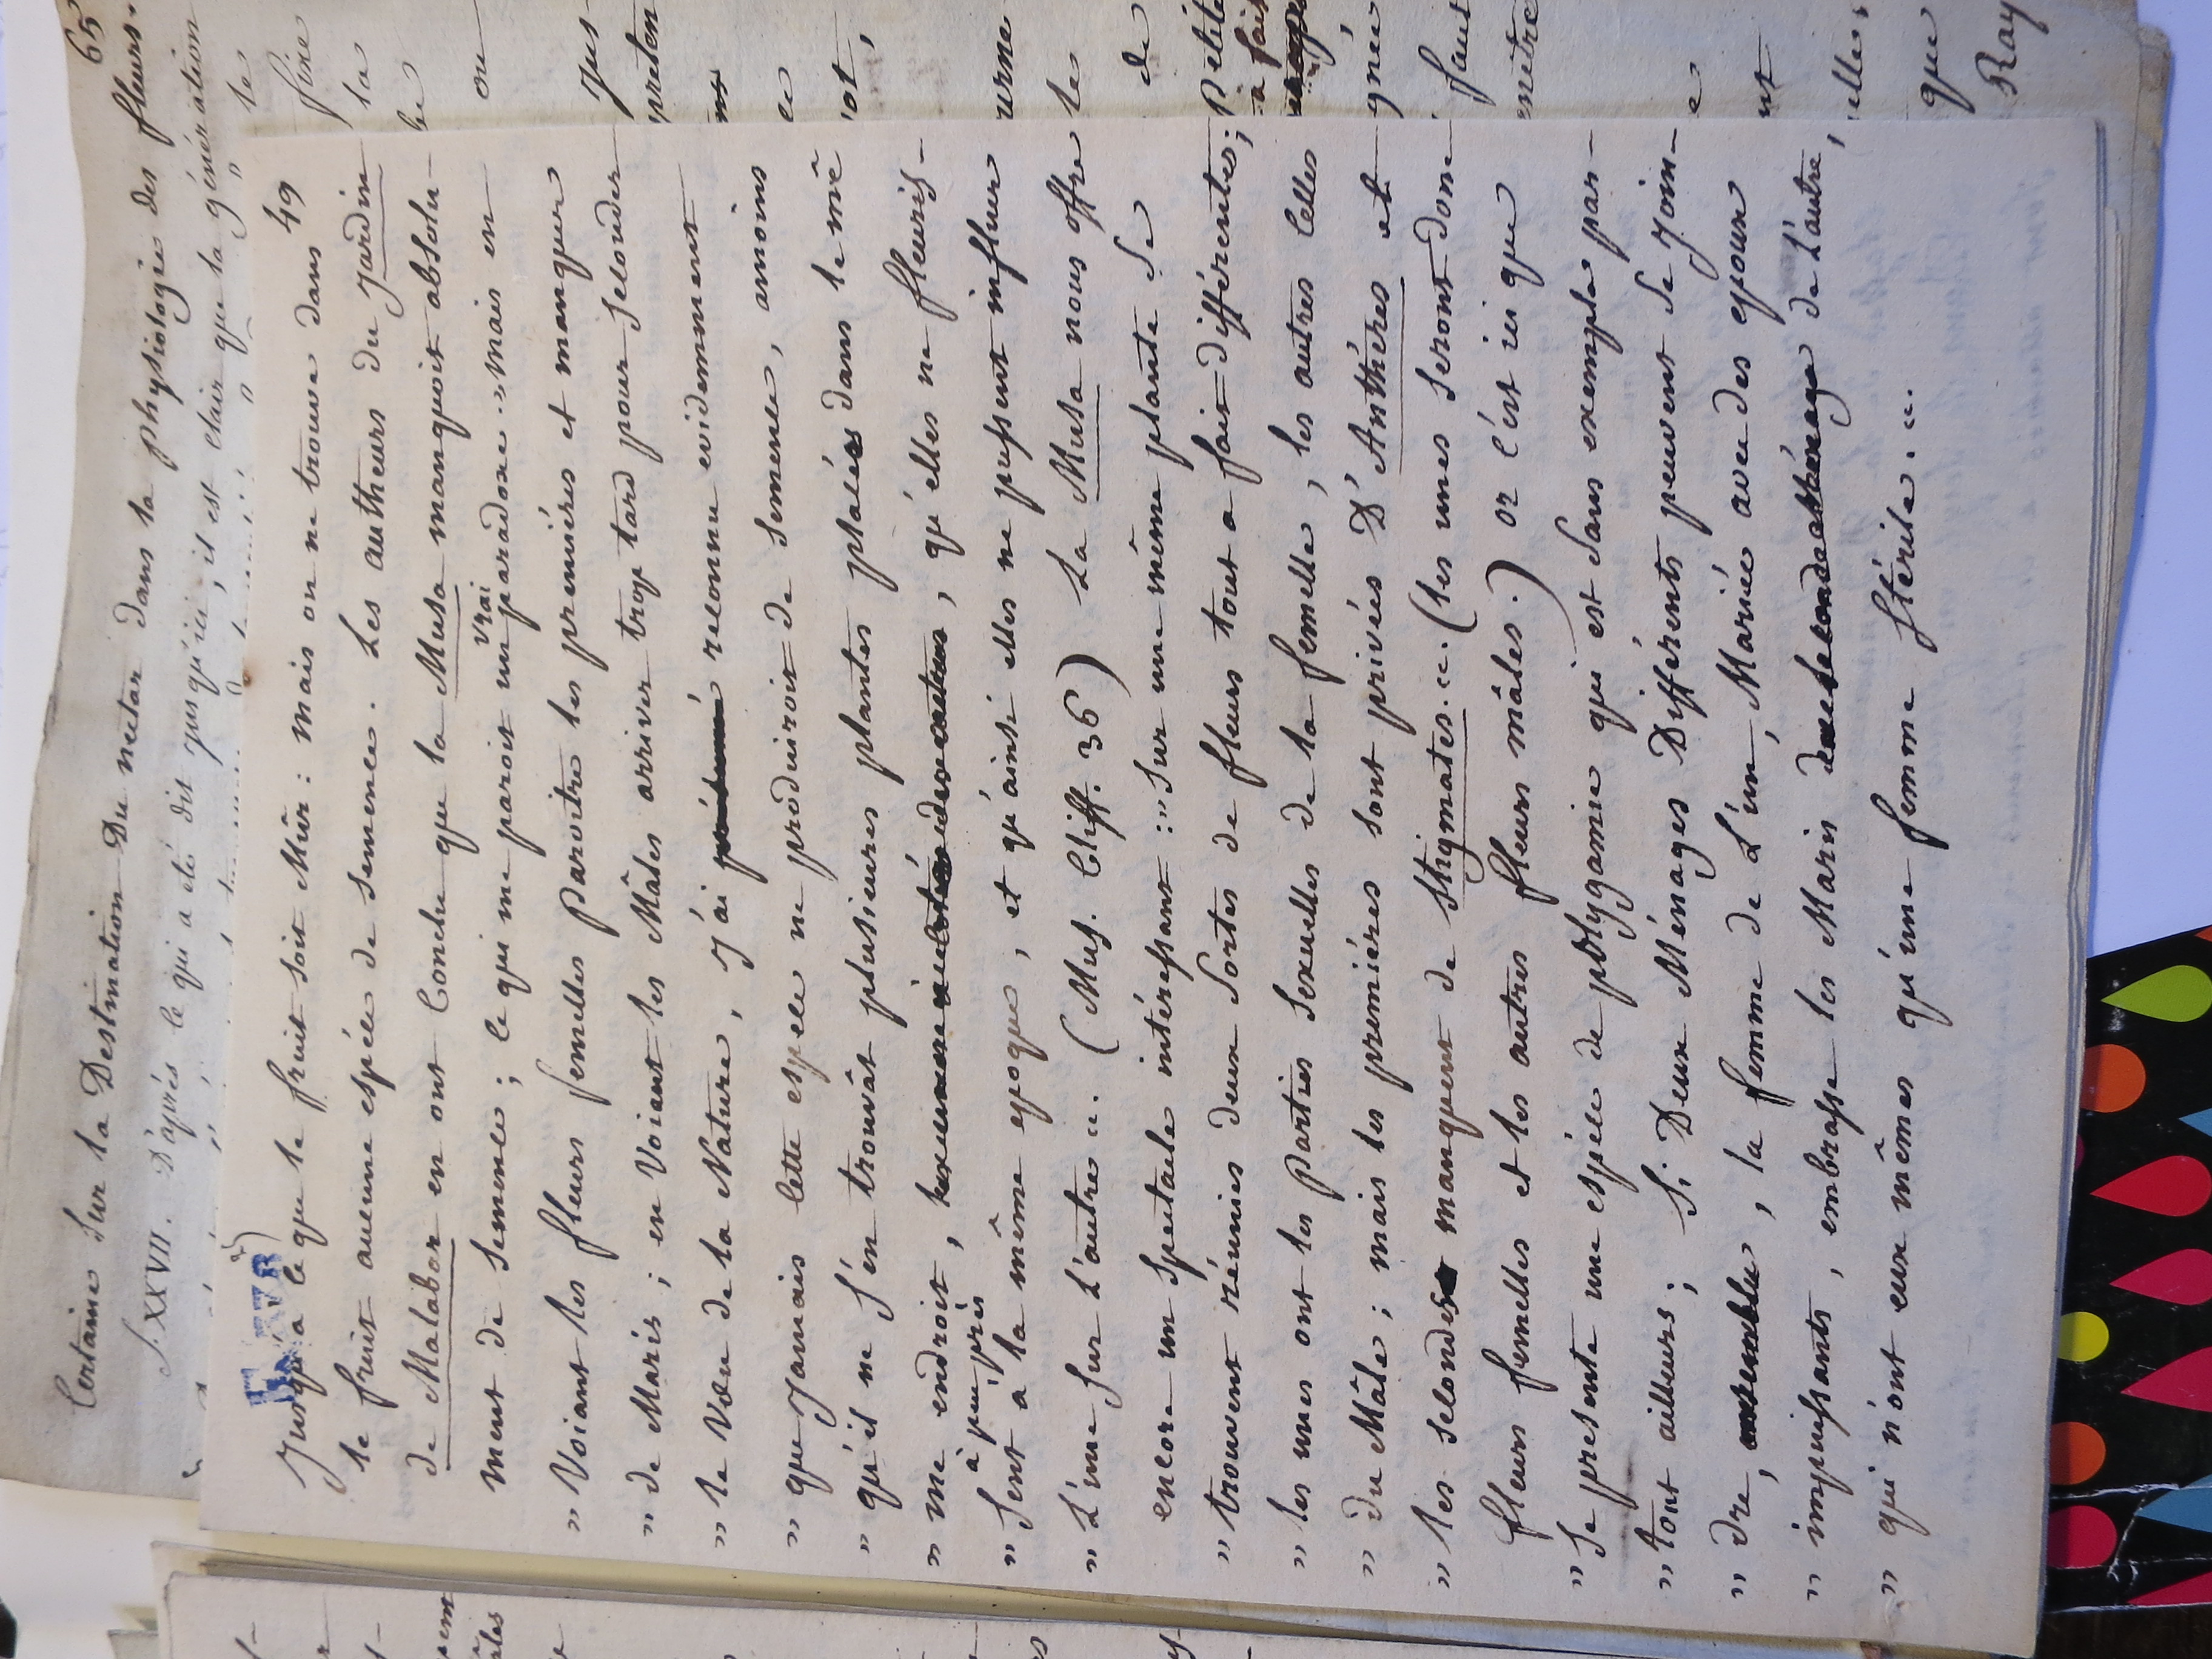 65
Certaine sur la Destination Du nectar dans la physiologie des fleurs.
S. XXVII. D'après ce qui a eté dit jusqu'ici, il est clair que la génération
49
Jusqu'a ce que le fruit soit Mûr: mais on ne trouve dans
le fruit aucune espéce de semence. Les autheurs du Jardin
de Malabar en ont Conclu que la Musa manquoit absolu-
ment de semence; ce qui me paroit un vrai paradoxe. „Mais en
„ Voiant les fleurs femelles Paroitre les premiéres et manquer
„ de Maris; en Voiant les Mâles arriver trop tard pour seconder
„ le Vœu de la Nature, j'ai reconnu evidemment
„ que jamais cette espece ne produiroit de semence, amoins
„ qu'il ne s'en trouvât plusieures plantes placées dans le mê
„ me endroit, , qu'elles ne fleuris-
„ sent à peu près a la même epoque, et qu'ainsi elles ne pussent influer
„ L'une sur L'autre „. (Mus. Cliff. 36) La Musa nous offre
encore un spectacle intéressant: „Sur une même plante se
„ trouvent réunies deux Sortes de fleurs tout a fait différentes;
„ les unes ont les Parties Sexuelles de la femelle, les autres Celles
„ du Mâle; mais les premiéres sont privées D'Anthéres et
„ les secondes manquent de Stigmates. „. (les unes seront donc
fleurs femelles et les autres fleurs mâles.) or c'est ici que
„ Se presente une espéce de polygamie qui est sans exemple par-
„ tout ailleurs; Si Deux Ménages Différents peuvent se Join-
„ dre, , la femme de L'un, Mariée avec des epoux
„ impuissants, embrasse les Maris de L'autre,
„ qui n'ont eux mêmes qu'une femme Stérile. „.
le
fixe
la
be
ou
Jus
preten
ns
ce
'ot,
urne
le
de
Petite
a fait
gnée
faut
enètre
e
nt
elles
que
Ray